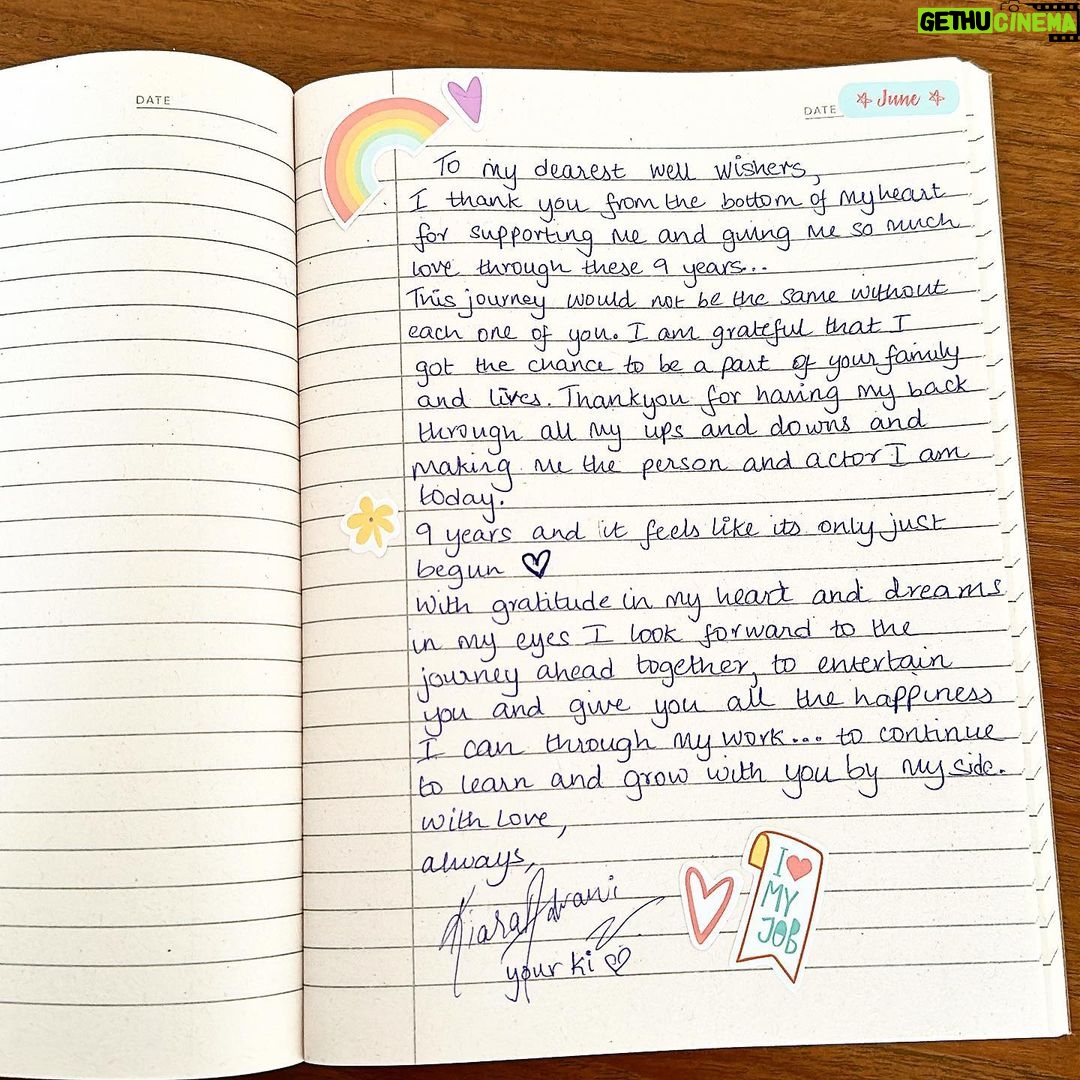 GETHUCINEMA
DATE
DATE
June
To my dearest well wishers,
I thank you from the bottom of my heart
for supporting me and giving me so much
love through these 9 years...
This journey would not be the same without
each one of you. I am grateful that I
got the chance to be a part of your family
and lives. Thankyou for having my back
through all my ups and downs and
making me the person and actor I am
today.
9 years and it feels like its only just
begun ♡
With gratitude in my heart and dreams
in my eyes I look forward to the
journey ahead together, to entertain
you and give you all the happiness
I can through my work... to continue
to learn and grow with you by my side.
with love,
always,
Kiara Advani
your ki ♡
I ♥
MY
JOB